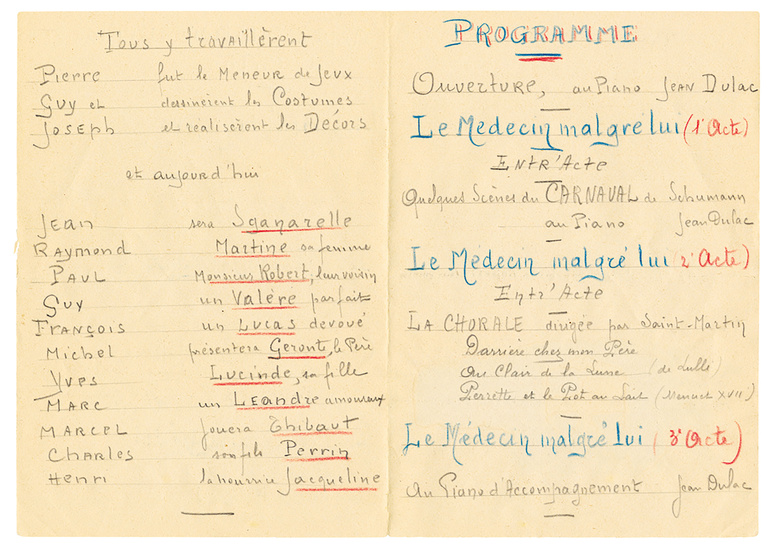 Tous y travaillèrent
Pierre fut le Meneur de Jeux
Guy et dessinèrent les Costumes
Joseph et réalisèrent les Décors
et aujourd'hui
Jean sera Sganarelle
Raymond Martine sa femme
Paul Monsieur Robert, leur voisin
Guy un Valère parfait
François un Lucas dévoué
Michel présentera Géront, le Père
Yves Lucinde, sa fille
Marc un Léandre amoureux
Marcel jouera Thibaut
Charles son fils Perrin
Henri la nourrice Jacqueline
PROGRAMME
Ouverture, au Piano Jean Dulac
Le Médecin malgré lui (1° Acte)
Entr'Acte
Quelques Scènes du CARNAVAL de Schumann
au Piano Jean Dulac
Le Médecin malgré lui (2° Acte)
Entr'Acte
LA CHORALE dirigée par Saint-Martin
Darrière chez mon Père
Au Clair de la Lune (de Lulli)
Pierrette et le Pot au Lait (Menuet XVII°)
Le Médecin malgré lui (3° Acte)
Au Piano d'Accompagnement Jean Dulac